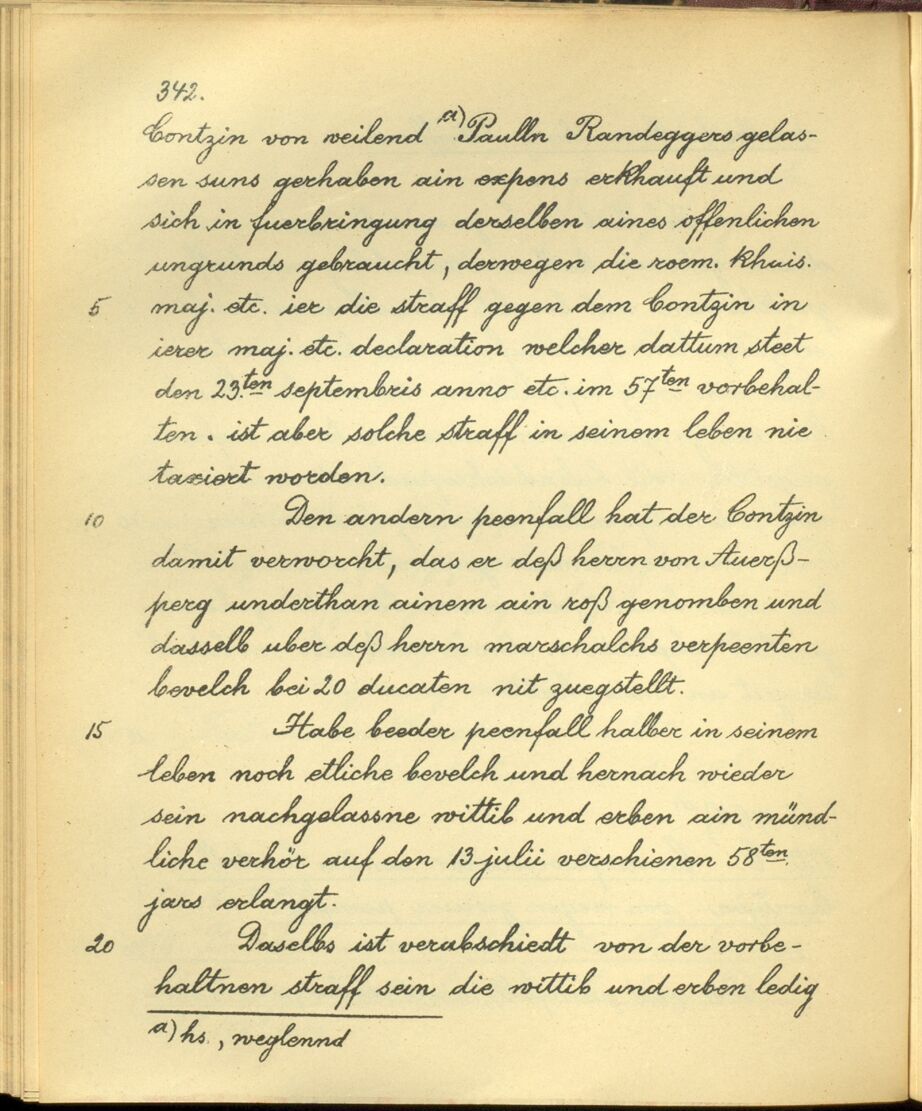 342.
Contzin von weilend a) Paulln Randeggers gelas-
sen suns gerhaben ain expens erkhauft und
sich in fuerbringung derselben aines offenlichen
ungrunds gebraucht, derwegen die roem. khais.
5 maj. etc. ier die straff gegen dem Contzin in
ierer maj. etc. declaration welcher dattum steet
den 23.ten septembris anno etc. im 57ten vorbehal-
ten. ist aber solche straff in seinem leben nie
taxiert worden.
10 Den andern peenfall hat der Contzin
damit verworcht, das er deß herrn von Auerß-
perg underthan ainem ain roß genomben und
dasselb uber deß herrn marschalchs verpeenten
bevelch bei 20 ducaten nit zuegstellt.
15 Habe beeder peenfall halber in seinem
leben noch etliche bevelch und hernach wieder
sein nachgelassne wittib und erben ain münd-
liche verhör auf den 13 julii verschienen 58ten
jars erlangt.
20 Daselbs ist verabschiedt von der vorbe-
haltnen straff sein die wittib und erben ledig
a) hs., weglennd